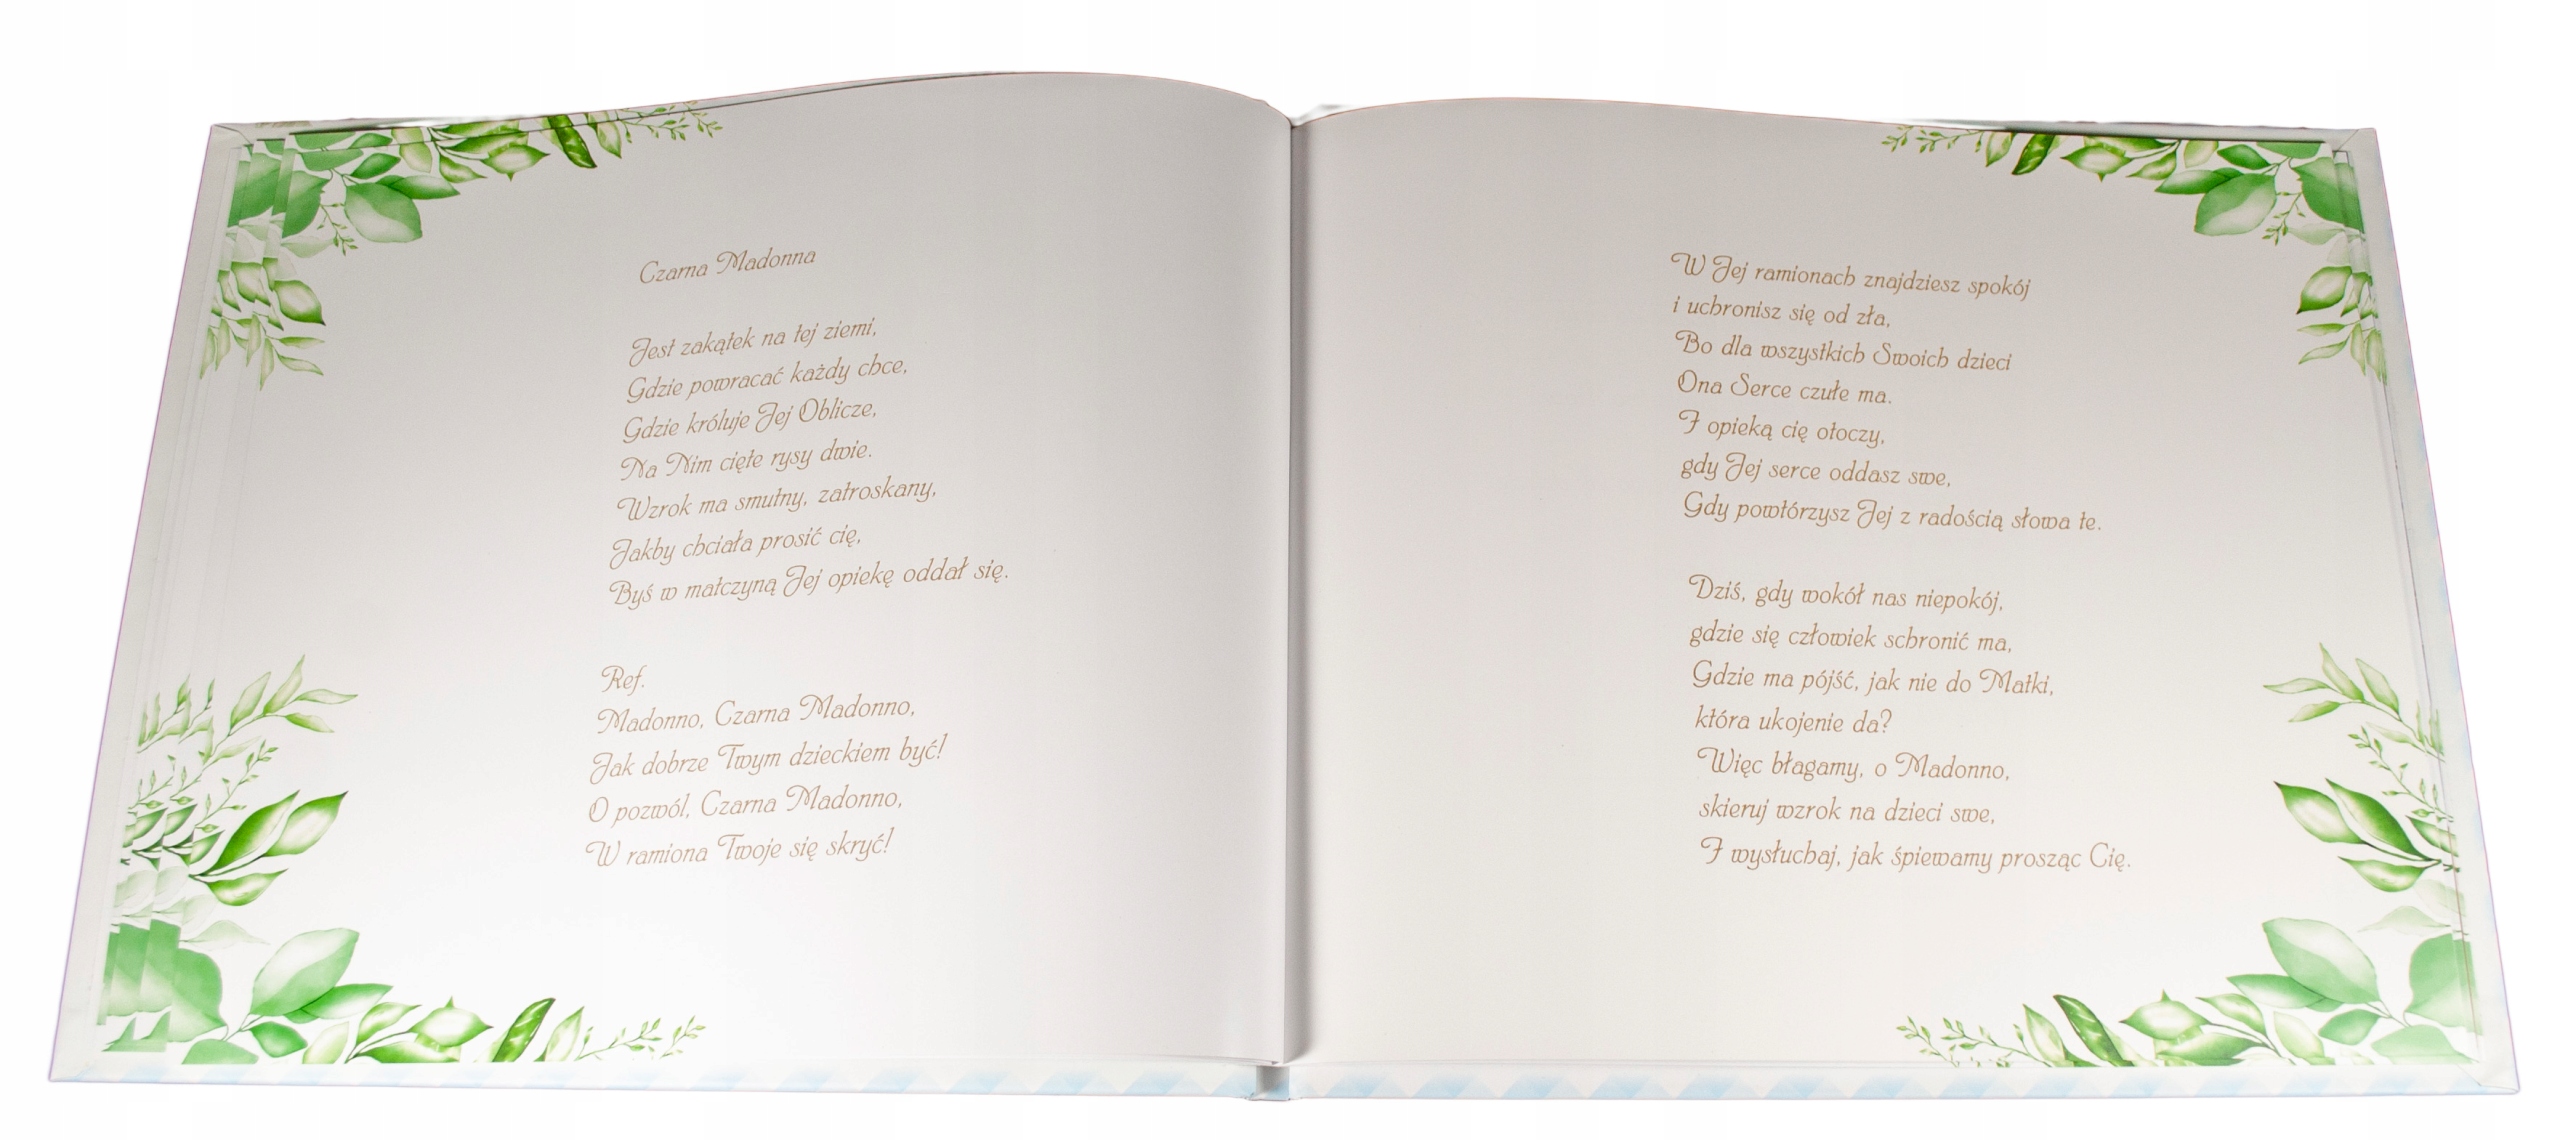 Czarna Madonna
Jest zakątek na tej ziemi,
Gdzie powracać każdy chce,
Gdzie króluje Jej Oblicze,
Na Nim cięte rysy dwie.
Wzrok ma smutny, zatroskany,
Jakby chciała prosić cię,
Byś w matczyną Jej opiekę oddał się.
Ref.
Madonno, Czarna Madonno,
Jak dobrze Twym dzieckiem być!
O pozwól, Czarna Madonno,
W ramiona Twoje się skryć!
W Jej ramionach znajdziesz spokój
i uchronisz się od zła,
Bo dla wszystkich Swoich dzieci
Ona Serce czułe ma.
I opieką cię otoczy,
gdy Jej serce oddasz swe,
Gdy powtórzysz Jej z radością słowa te.
Dziś, gdy wokół nas niepokój,
gdzie się człowiek schronić ma,
Gdzie ma pójść, jak nie do Matki,
która ukojenie da?
Więc błagamy, o Madonno,
skieruj wzrok na dzieci swe,
I wysłuchaj, jak śpiewamy prosząc Cię.